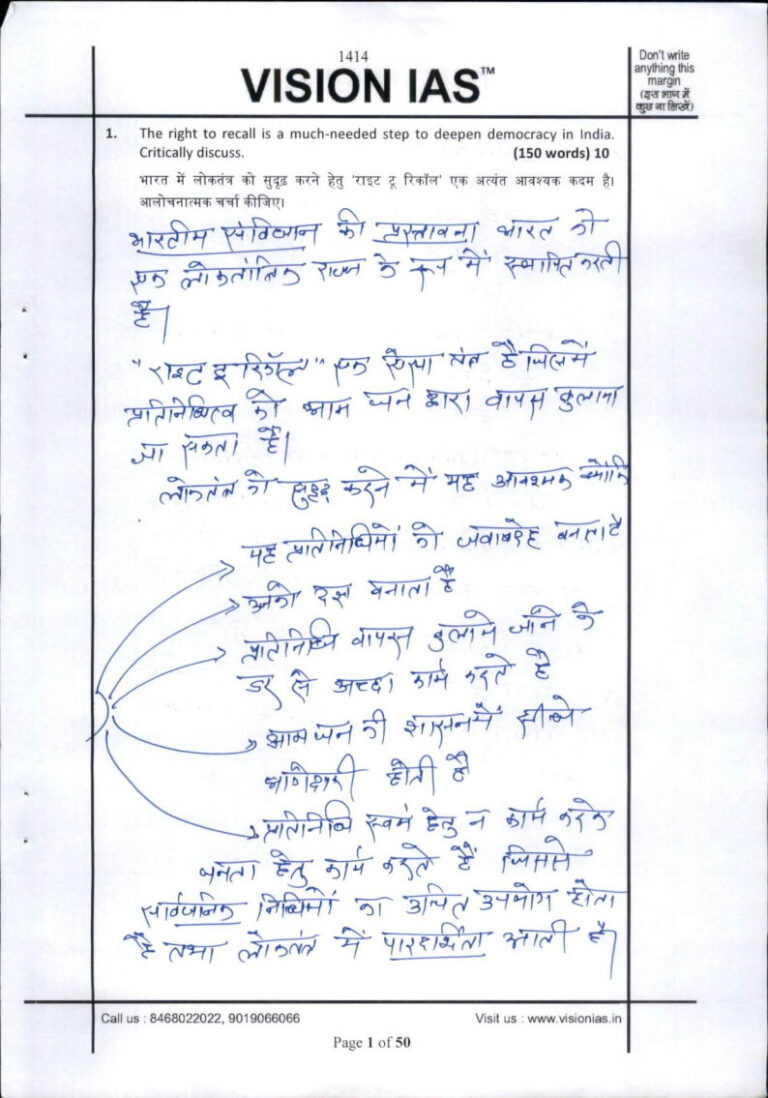 1414
VISION IAS™
Don't write
anything this
margin
(इस भाग में
कुछ ना लिखें)
1. The right to recall is a much-needed step to deepen democracy in India.
Critically discuss. (150 words) 10
भारत में लोकतंत्र को सुदृढ़ करने हेतु 'राइट टू रिकॉल' एक अत्यंत आवश्यक कदम है।
आलोचनात्मक चर्चा कीजिए।
भारतीय संविधान की प्रस्तावना भारत को
एक लोकतांत्रिक राज्य के रूप में स्थापित करती
है।
"राइट टू रिकॉल" एक ऐसा तंत्र है जिसमें
प्रतिनिधित्व को आम जन द्वारा वापस बुलाया
जा सकता है।
लोकतंत्र को सुदृढ़ करने में यह आवश्यक क्योंकि
यह प्रतिनिधियों को जवाबदेह बनाता है
दक्ष बनाता है
प्रतिनिधि वापस बुलाये जाने के
डर से अच्छा कार्य करते है
आम जन की शासन में सीधे
भागेदारी होती है
प्रतिनिधि स्वयं हेतु न कार्य करके
जनता हेतु कार्य करते हैं जिससे
सार्वजनिक निधियों का उचित उपयोग होता
है तथा लोकतंत्र में पारदर्शिता आती है।
Call us : 8468022022, 9019066066 Visit us : www.visionias.in
Page 1 of 50